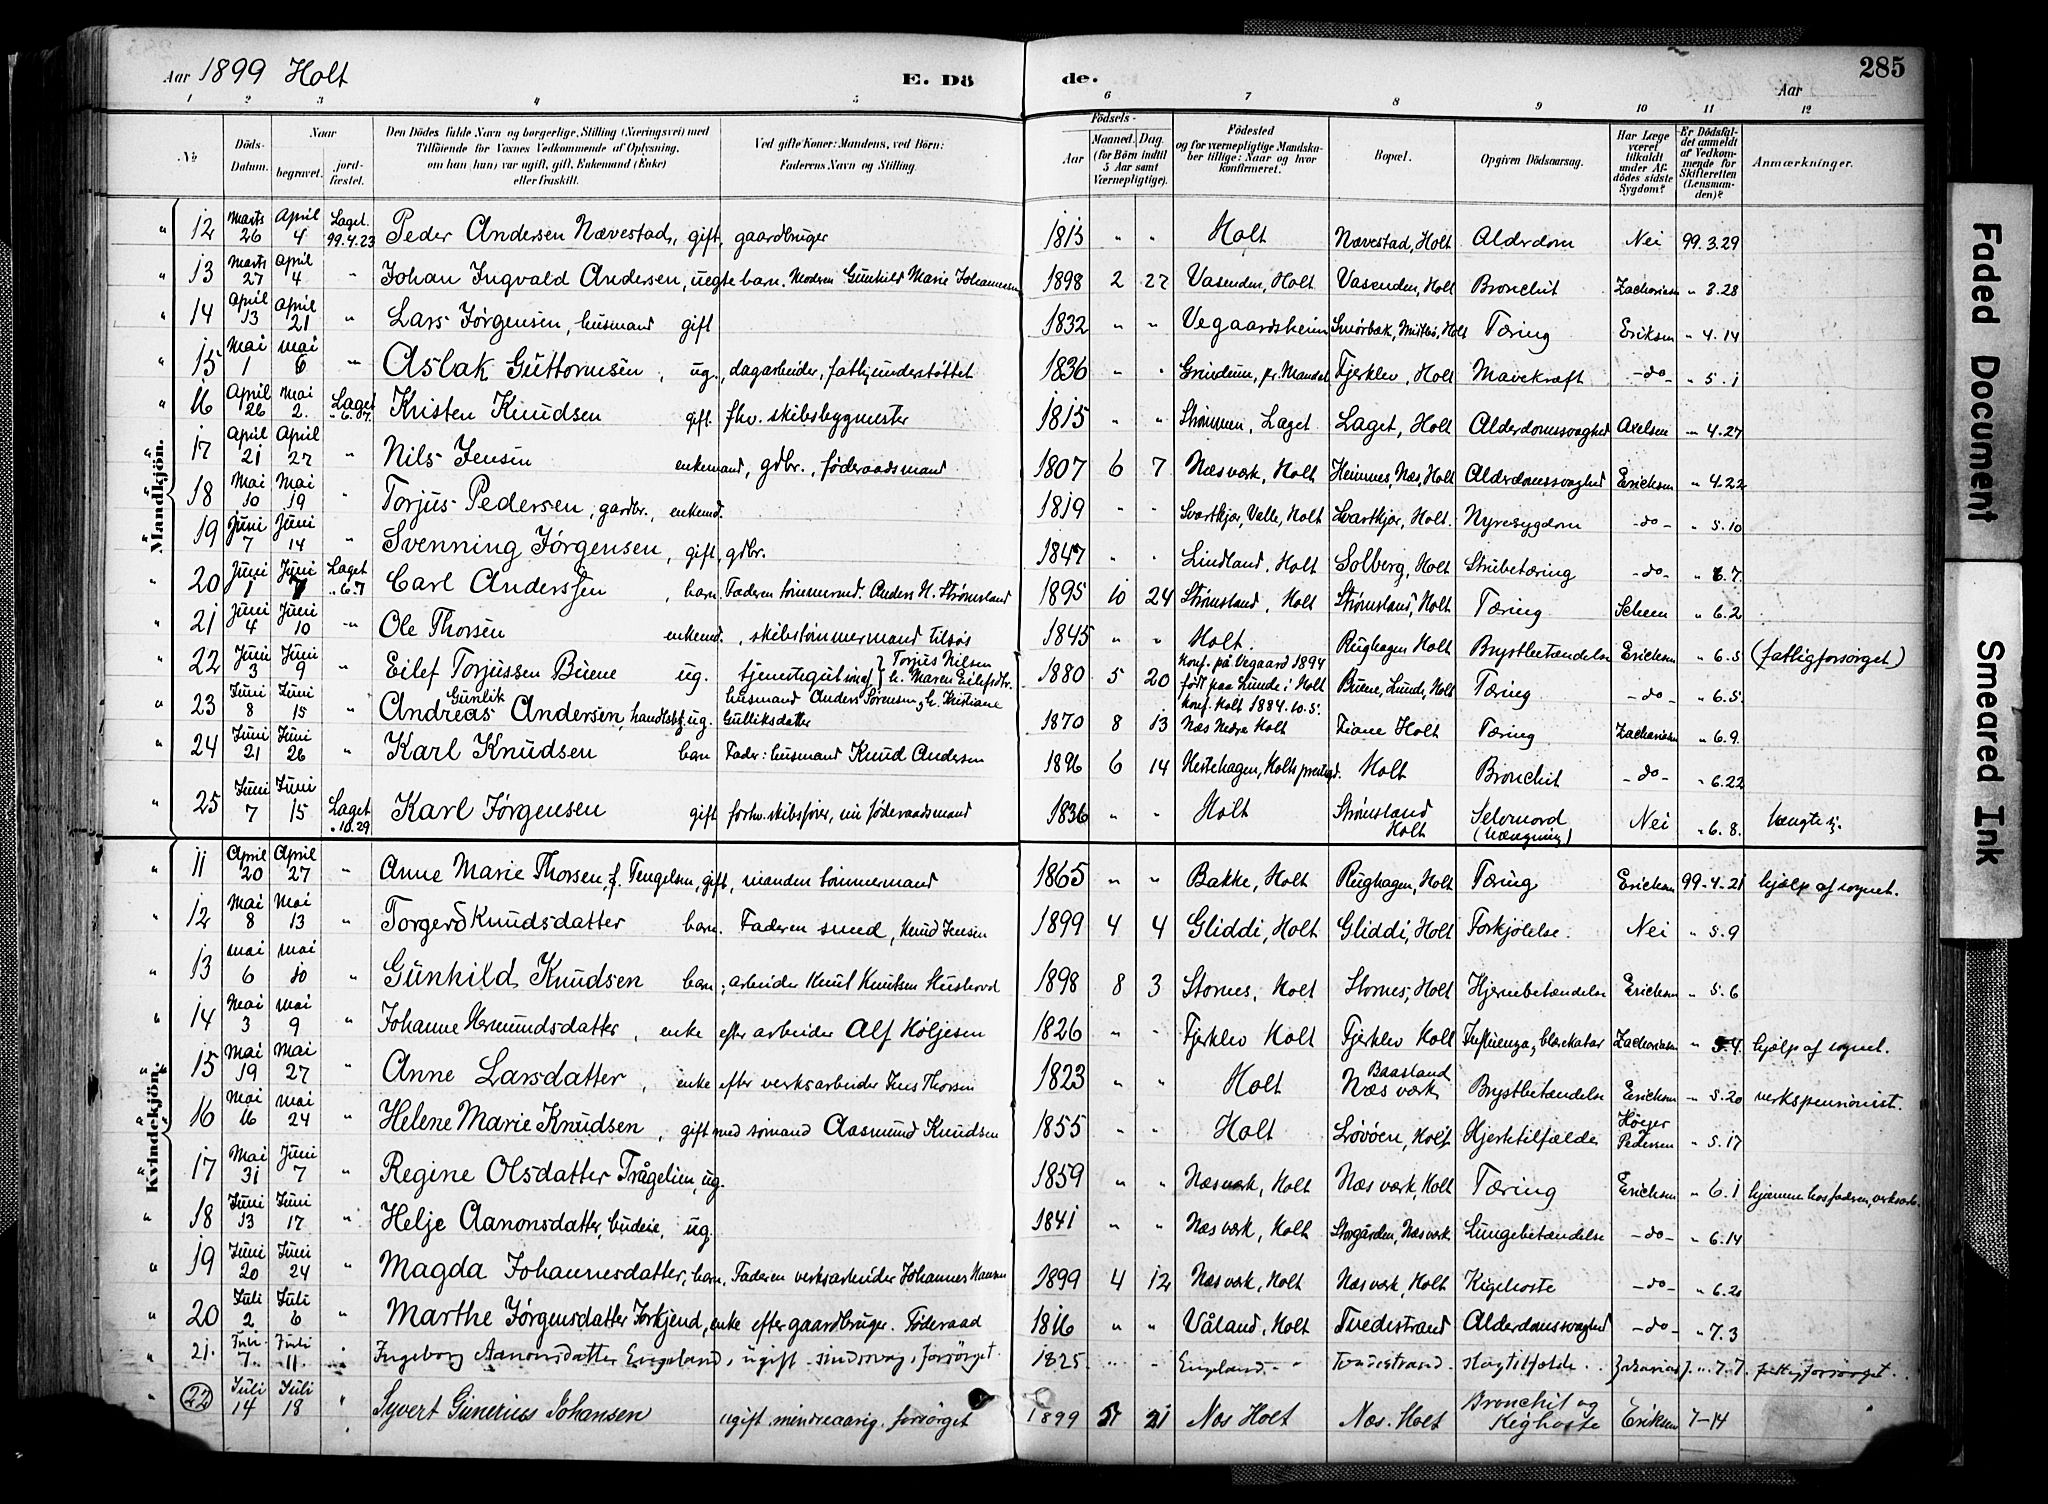 Aar 1899 Holt E. Dö de. Aar 285
1 2 3 4 5 6 7 8 9 10 11 12
№ Döds-Datum. Naar begravet. jordfæstet. Den Dödes fulde Navn og borgerlige Stilling (Næringsvei) med Tilföiende for Voxnes Vedkommende af Oplysning, om han (hun) var ugift, gift, Enkemand (Enke) eller fraskilt. Ved gifte Koner: Mandens, ved Börn: Faderens Navn og Stilling. Födsels- Aar Maaned. Dag. (for Börn indtil 5 Aar samt Værnepligtige). Födested og for værnepligtige Mandskaber tillige: Naar og hvor konfirmeret. Bopæl. Opgiven Dödsaarsag. Har Læge været tilkaldt under Afdödes sidste Sygdom? Er Dödsfaldet anmeldt af Vedkommende for Skifteretten (Lensmanden)? Anmærkninger.
Mandkjön.
" 12 Marts 26 April 4 Laget 99.4.23 Peder Andersen Nævestad, gift, gaardbruger 1813 " " Holt Nævestad, Holt Alderdom Nei 99.3.29
" 13 Marts 27 April 4 " Johan Ingvald Andersen, uegte barn. Moderen Gunhild Marie Johannesen 1898 2 27 Vasenden, Holt Vasenden, Holt Bronchit Zachariasen " 3.28
" 14 April 13 April 21 " Lars Jørgensen, husmand gift 1832 " " Vegaardsheim Smörbæk, Holt Tæring Eriksen " 4.14
" 15 Mai 1 Mai 6 " Aslak Guttormsen, ug., dagarbeider, fattigunderstöttet 1836 " " Grindum, pr. Mandal Fjerklev, Holt Mavekræft -do- " 5.1
" 16 April 26 Mai 2. Laget " 6.7. Kristen Knudsen gift. fhv. skibsbygmester 1815 " " Strömmen, Laget Laget, Holt Alderdomssvaghed Axelsen " 4.27
" 17 April 21 April 27 " Nils Jensen enkemand, gdbr., föderaadsmand 1807 6 7 Næs værk, Holt Heimnes, Næs, Holt Alderdomssvaghed Ericksen " 4.22
" 18 Mai 10 Mai 19 " Torjus Pedersen, gardbr., enkemd. 1819 " " Svartkjær, Valle, Holt Svartkjær, Holt. Nyresygdom -do- " 5.10
" 19 Juni 7 Juni 14 " Svenning Jørgensen, gift, gdbr. 1847 " " Lindland, Holt Solberg, Holt Strubetæring -do- " 6.7.
" 20 Juni 1 Juni 7 Laget " 6.7 Carl Anderssen, barn. Faderen tømmermd. Anders N. Strømsland 1895 10 24 Strømsland, Holt Strømsland, Holt Tæring Scheen " 6.2
" 21 Juni 4 Juni 10 " Ole Thorsen enkemd., skibstömmermand tilsös 1845 " " Holt. Rughagen Holt Brystbetændelse Ericksen " 6.5 (fattigforsörget)
" 22 Juni 3 Juni 9 " Eilef Torjussen Buene ug. tjenestegut, søn af { Torjus Nilsen h. Maren Eilefsdtr. 1880 5 20 konf. på Vegaard 1894 født paa Lunde i Holt Buene, Lunde, Holt Tæring -do- " 6.5.
" 23 Juni 8 Juni 15 " Andreas Gunlik Andersen, handlsbtj. ug. husmand Anders Sörensen, h. Kristiane Gulliksdatter 1870 8 13 konf. Holt 1884.10.5. Næs Nedre Holt Fiane Holt Tæring Zachariasen " 6.9.
" 24 Juni 21 Juni 26 " Karl Knudsen barn Fader: husmand Knud Andersen 1896 6 14 Hestehagen, Holts prestegd. Holt Bronchit -do- " 6.22
" 25 Juni 7 Juni 15 Laget " 10.29 Karl Jørgensen gift forhv. skibsfører, nu föderaadsmand 1836 " " Holt Strømsland Holt Selvmord (hængning) Nei " 6.8. hængte sig.
Kvindekjön.
" 11 April 20 April 27 " Anne Marie Thorsen, f. Tengelsen, gift, manden tømmermand 1865 " " Bakke, Holt Rughagen, Holt Tæring Ericksen 99-4-21 hjælp af sognet.
" 12 Mai 8 Mai 13 " Torgerd Knudsdatter barn. Faderen smed, Knud Jensen 1899 4 4 Gliddi, Holt Gliddi, Holt Forkjölelse. Nei " 5.9
" 13 Mai 6 Mai 10 " Gunhild Knudsen barn, arbeider Knut Knutsen 1898 8 3 Stornes, Holt Stornes, Holt Hjernebetændelse Ericksen " 5.6
" 14 Mai 3 Mai 9 " Johanne Hermundsdatter, enke efter arbeider Alf Höljesen 1826 " " Fjerklev Holt Fjerklev Holt Influenza, blærekatar Zachariasen " 5.4. hjælp af sognet.
" 15 Mai 19 Mai 27 " Anne Larsdatter, enke efter verksarbeider Jens Thorsen 1823 " " Holt Baasland Næs værk Brystbetændelse Ericksen " 5.20 verkspensionist.
" 16 Mai 16 Mai 24 " Helene Marie Knudsen, gift med sømand Aasmund Knudsen 1855 " " Holt Løvöen, Holt Hjertetilfælde Höyer Pedersen " 5.17
" 17 Mai 31 Juni 7 " Regine Olsdatter Trågelien, ug. 1859 " " Næsværk, Holt Næs værk, Holt Tæring Ericksen " 6.1 hjemme hos faderen, verksarb.
" 18 Juni 13 Juni 17 " Helje Aanonsdatter, budeie, ug. 1841 " " Næs værk, Holt Storgården, Næsværk Lungebetændelse -do- " 6.14
" 19 Juni 20 Juni 24 " Magda Johannesdatter, barn, Faderen verksarbeider Johannes Hansen 1899 4 12 Næsværk, Holt Næsværk, Holt Kighoste -do- " 6.21
" 20 Juli 2 Juli 6 " Marthe Jørgensdatter Torkjend, enke efter gaardbruger. Föderaad 1816 " " Våland, Holt Tvedestrand Alderdomssvaghed -do- " 7.3
" 21. Juli 7. Juli 11. " Ingeborg Aanonsdatter Engeland, ugift sindssvag, forsörget. 1825 " " Engeland " Tvedestrand. slagtilfælde. Zacharias. " 7.7. fattigforsörget.
" 22 Juli 14 Juli 18 " Syvert Gunerius Johansen ugift mindreaarig forsörget 1899 5 21 Næs Holt Næs. Holt Bronchit og Kighoste Eriksen 7-14
Faded Document
Smeared Ink